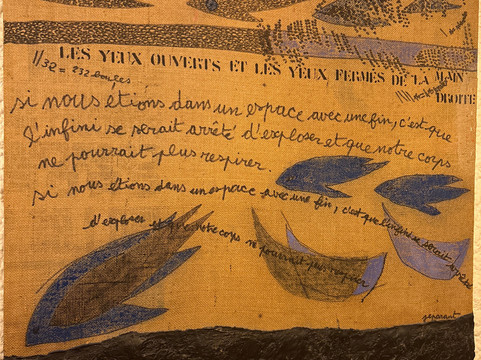 1/32 = 232 bouées
LES YEUX OUVERTS ET LES YEUX FERMÉS DE LA MAIN
DROITE
si nous étions dans un espace avec une fin, c'est que
l'infini se serait arrêté d'exploser et que notre corps
ne pourrait plus respirer.
si nous étions dans un espace avec une fin, c'est que l'infini se serait arrêté
d'exploser et que notre corps ne pourrait plus respirer